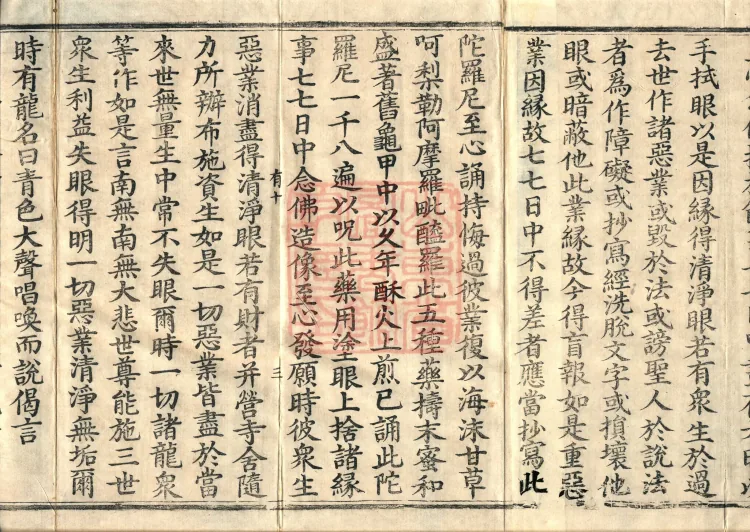 手拭眼以是因縁得清淨眼若有衆生於過
去世作諸惡業或毀於法或謗聖人於說法
者爲作障礙或抄寫經洗脫文字或損壞他
眼或暗蔽他此業縁故今得盲報如是重惡
業因縁故七七日中不得差者應當抄寫此
陀羅尼至心誦持悔過彼業復以海沫甘草
呵梨勒阿摩羅毗醯羅此五種藥擣末蜜和
盛著舊龜甲中以久年酥火上煎已誦此陀
羅尼一千八遍以呪此藥用塗眼上捨諸縁
事七七日中念佛造像至心發願時彼衆生
有十 三
惡業消盡得清淨眼若有財者并營寺舍隨
力所辦布施資生如是一切惡業皆盡於當
來世無量生中常不失眼爾時一切諸龍衆
等作如是言南無南無大悲世尊能施三世
衆生利益失眼得明一切惡業清淨無垢爾
時有龍名曰青色大聲唱喚而說偈言